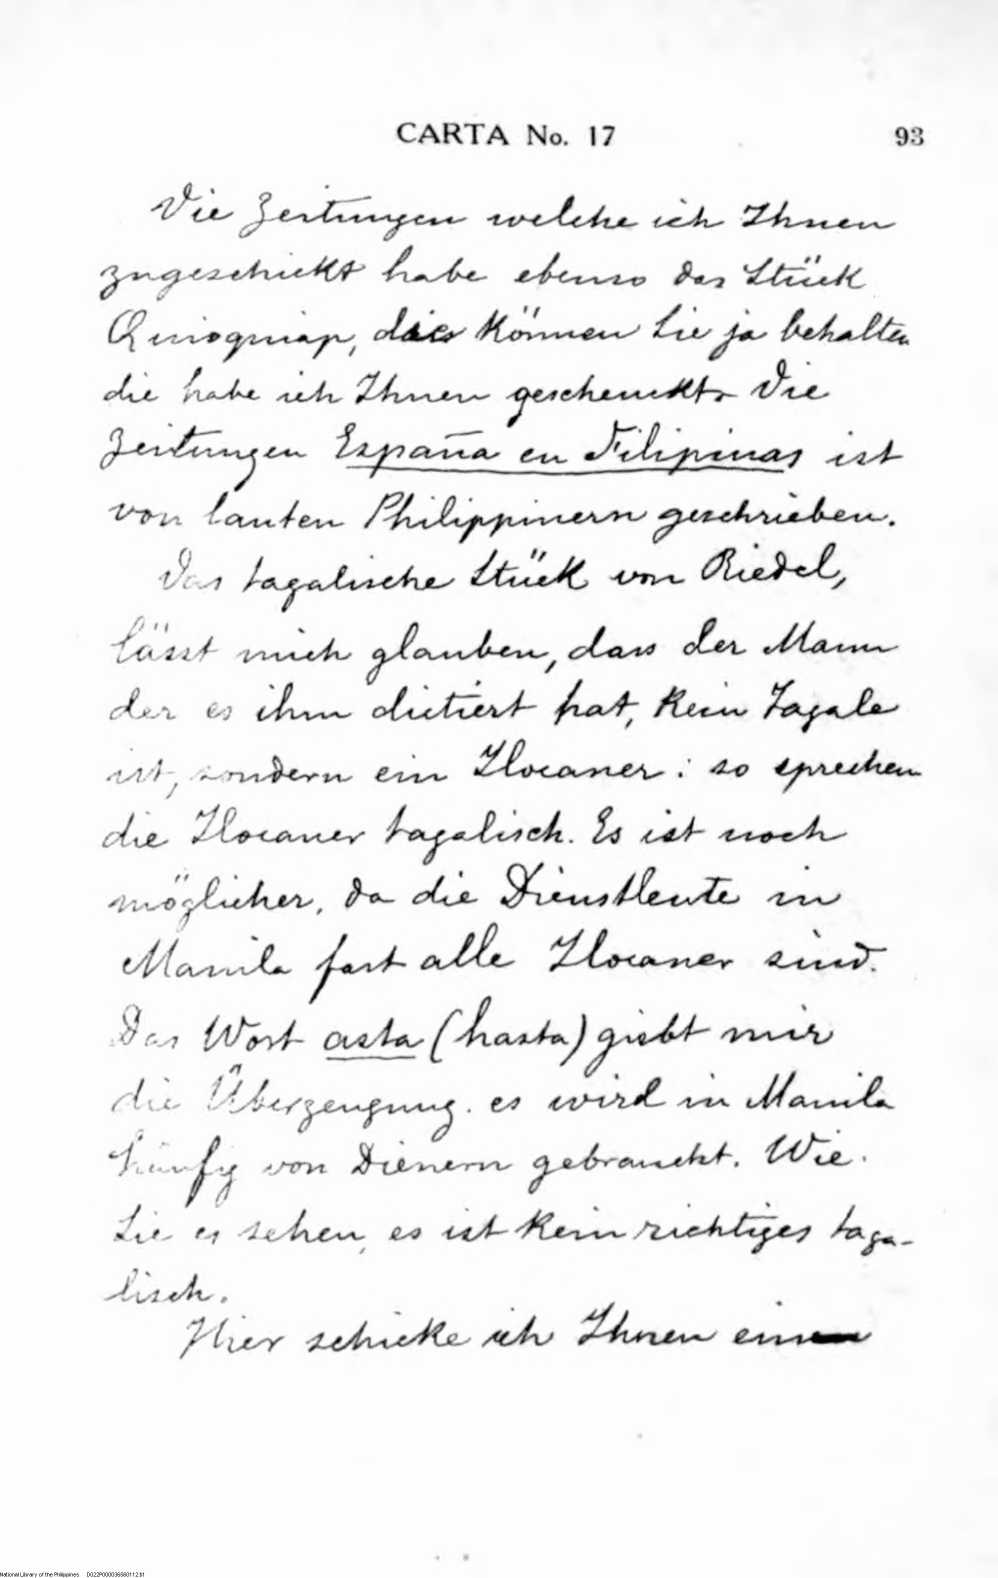 CARTA No. 17 93
Die Zeitungen welche ich Ihnen
zugeschickt habe ebenso das Stück
Quioquiap, dies können Sie ja behalten
die habe ich Ihnen geschenckt. Die
Zeitungen España en Filipinas ist
von lauten Philippinern geschrieben.
Das tagalische Stück von Riedel,
lässt mich glauben, dass der Mann
der es ihm dictiert hat, kein Tagale
ist, sondern ein Ilocaner: so sprechen
die Ilocaner tagalisch. Es ist noch
möglicher, da die Dienstleute in
Manila fast alle Ilocaner sind.
Das Wort asta (hasta) giebt mir
die Überzeugung. es wird in Manila
häufig von Dienern gebraucht. Wie
Sie es sehen, es ist kein richtiges taga-
lisch.
Hier schicke ich Ihnen ein
National Library of the Philippines